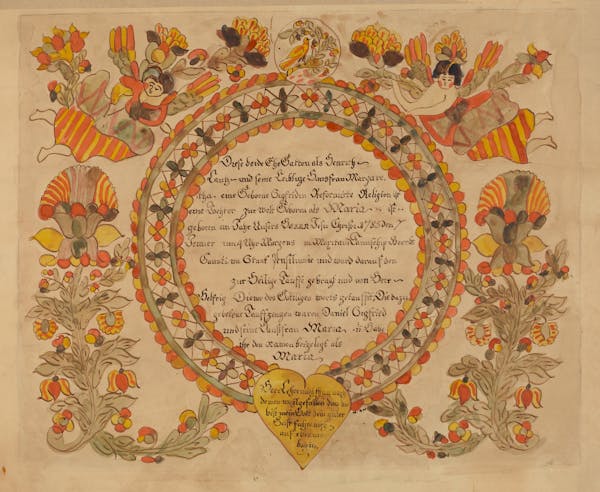 Diese beide Ehe Gatten als Henrich
Lautz und seine Ehliche Hausfrau Margare
tha eine Geborne Sigfriden Reformirte Religion ist
eine Tochter zur Welt Geboren als Maria ist
geboren im Jahr Unsers Herrn Jesu Christi 1785 den 7
Januer um 4 Uhr Morgens in Maxetani Taunschip Beercks
Caunti im Staat Pensilvanie und ward darauf den
zur Heilige Tauffe gebragt und von Herr
Helfrig Diener des Göttligen worts getauffet Die dazu
gebetene Tauffzeugen waren Daniel Sigfried
und seine Hausfrau Maria
the den Namen beygelegt als
Maria
Herr Lehre mich thun nach
deinem wohlgefallen dan du
bist mein Gott dein guter
Geist führe mich
auf ebener
bahn